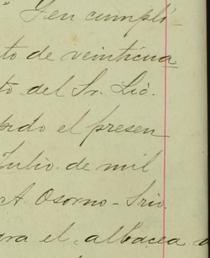 " Y en cumpli
to de veinticua
to del Sr. Lic.
pido el presen
Julio de mil
A. Osorno - Srio.
ara el albacea